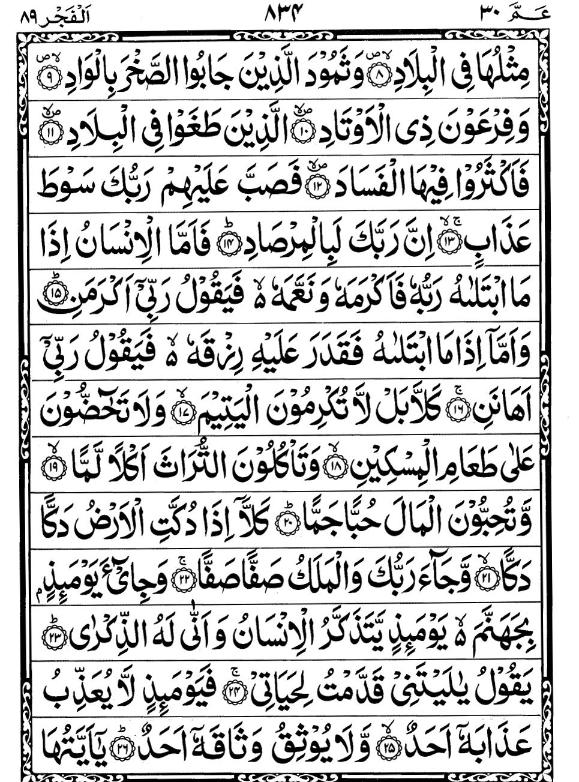 عـمّ ٣٠ ٨٣۴ اَلْفَجْر ٨٩
مِثْلُهَا فِی الْبِلَادِ ۝٨ وَثَمُوْدَ الَّذِیْنَ جَابُوا الصَّخْرَ بِالْوَادِ ۝٩
وَفِرْعَوْنَ ذِی الْاَوْتَادِ ۝١٠ الَّذِیْنَ طَغَوْا فِی الْبِلَادِ ۝١١
فَاَكْثَرُوْا فِیْهَا الْفَسَادَ ۝١٢ فَصَبَّ عَلَیْهِمْ رَبُّكَ سَوْطَ
عَذَابٍ ۝١٣ اِنَّ رَبَّكَ لَبِالْمِرْصَادِ ۝١۴ فَاَمَّا الْاِنْسَانُ اِذَا
مَا ابْتَلٰىهُ رَبُّهٗ فَاَكْرَمَهٗ وَنَعَّمَهٗ ۙ۬ فَیَقُوْلُ رَبِّیْۤ اَكْرَمَنِ ۝١۵
وَاَمَّاۤ اِذَا مَا ابْتَلٰىهُ فَقَدَرَ عَلَیْهِ رِزْقَهٗ ۙ۬ فَیَقُوْلُ رَبِّیْۤ
اَهَانَنِ ۝١٦ كَلَّا بَلْ لَّا تُكْرِمُوْنَ الْیَتِیْمَ ۝١٧ وَلَا تَحٰٓضُّوْنَ
عَلٰی طَعَامِ الْمِسْكِیْنِ ۝١٨ وَتَاْكُلُوْنَ التُّرَاثَ اَكْلًا لَّمًّا ۝١٩
وَّتُحِبُّوْنَ الْمَالَ حُبًّا جَمًّا ۝٢٠ كَلَّاۤ اِذَا دُكَّتِ الْاَرْضُ دَكًّا
دَكًّا ۝٢١ وَّجَآءَ رَبُّكَ وَالْمَلَكُ صَفًّا صَفًّا ۝٢٢ وَجِایْٓءَ یَوْمَئِذٍۭ
بِجَهَنَّمَ ۙ۬ یَوْمَئِذٍ یَّتَذَكَّرُ الْاِنْسَانُ وَاَنّٰی لَهُ الذِّكْرٰی ۝٢٣
یَقُوْلُ یٰلَیْتَنِیْ قَدَّمْتُ لِحَیَاتِیْ ۝٢۴ فَیَوْمَئِذٍ لَّا یُعَذِّبُ
عَذَابَهٗۤ اَحَدٌ ۝٢۵ وَّلَا یُوْثِقُ وَثَاقَهٗۤ اَحَدٌ ۝٢٦ یٰۤاَیَّتُهَا